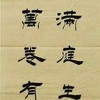 滿庭生
萬卷有